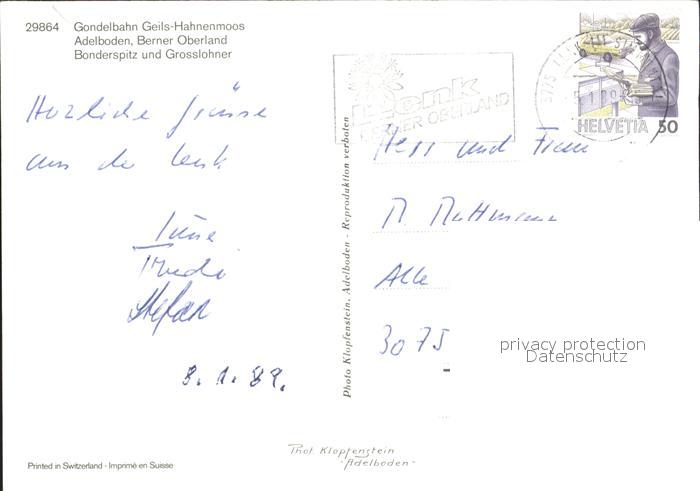 29864 Gondelbahn Geils-Hahnenmoos
Adelboden, Berner Oberland
Bonderspitz und Grosslohner
Herzliche Grüsse
aus der Lenk
Stefan
8.1.89.
Printed in Switzerland - Imprimé en Suisse
Photo Klopfenstein, Adelboden - Reproduktion verboten
Phot. Klopfenstein
-Adelboden-
Lenk
BERNER OBERLAND
3775
HELVETIA 50
Herr und Frau
Alle
3075
privacy protection
Datenschutz